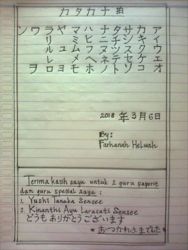 カタカナ 拍
アカサタナハマヤラワン
イキシチニヒミ リ
ウクスツヌフムユル
エケセテネヘメ レ
オコソトノホモヨロヲ
2018 年 3月6日
By:
Farhanah Helwah
Terima kasih saya untuk 2 guru favorite
dan guru spesial saya :
1. Yushi Tanaka Sensee
2. Kinanthi Ayu Larasati Sensee
どうも ありがとうございます
* おつかれさまでした *